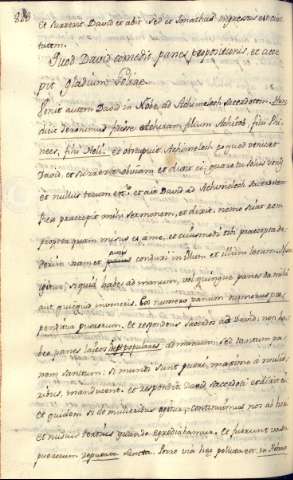 et surrexit David et abiit sed et Jonathas ingressus est civi
tatem.
Quod David comedit panes propositionis, et acce
pit gladium Goliae.
Venit autem David in Nobe, ad Achimelech sacerdotem.
dicit Hieronimus fuisse filium Achitob, filii Phi
nees, filii Heli. et obstupuit Achimelech eo quod venisset
David, et dixit ei: quare tu solus venis
et nullus tecum etc. et ait David ad Achimelech sacerdotem
Rex praecepit mihi sermonem, et dixit, nemo sciat rem
propter quam missus es, a me, et cuiusmodi tibi praecepta de
derim nam et pueris condixi in illum et illum locum. Nunc
igitur, si quid habes ad manum, vel quinque panes da mihi
aut quicquid inveneris.
puerorum. et respondens sacerdos ad David, non ha
beo panes laicos aut populares, ad manum sed tantum pa
nem sanctum. si mundi sunt pueri, maxime a mulie
ribus, manducent. et respondit David sacerdoti et dixit ei
et quidem si de mulieribus agitur, continuimus nos ab heri
et nudius tertius quando egrediebamur, et fuerunt vasa
puerorum sancta. Porro via haec polluta est.